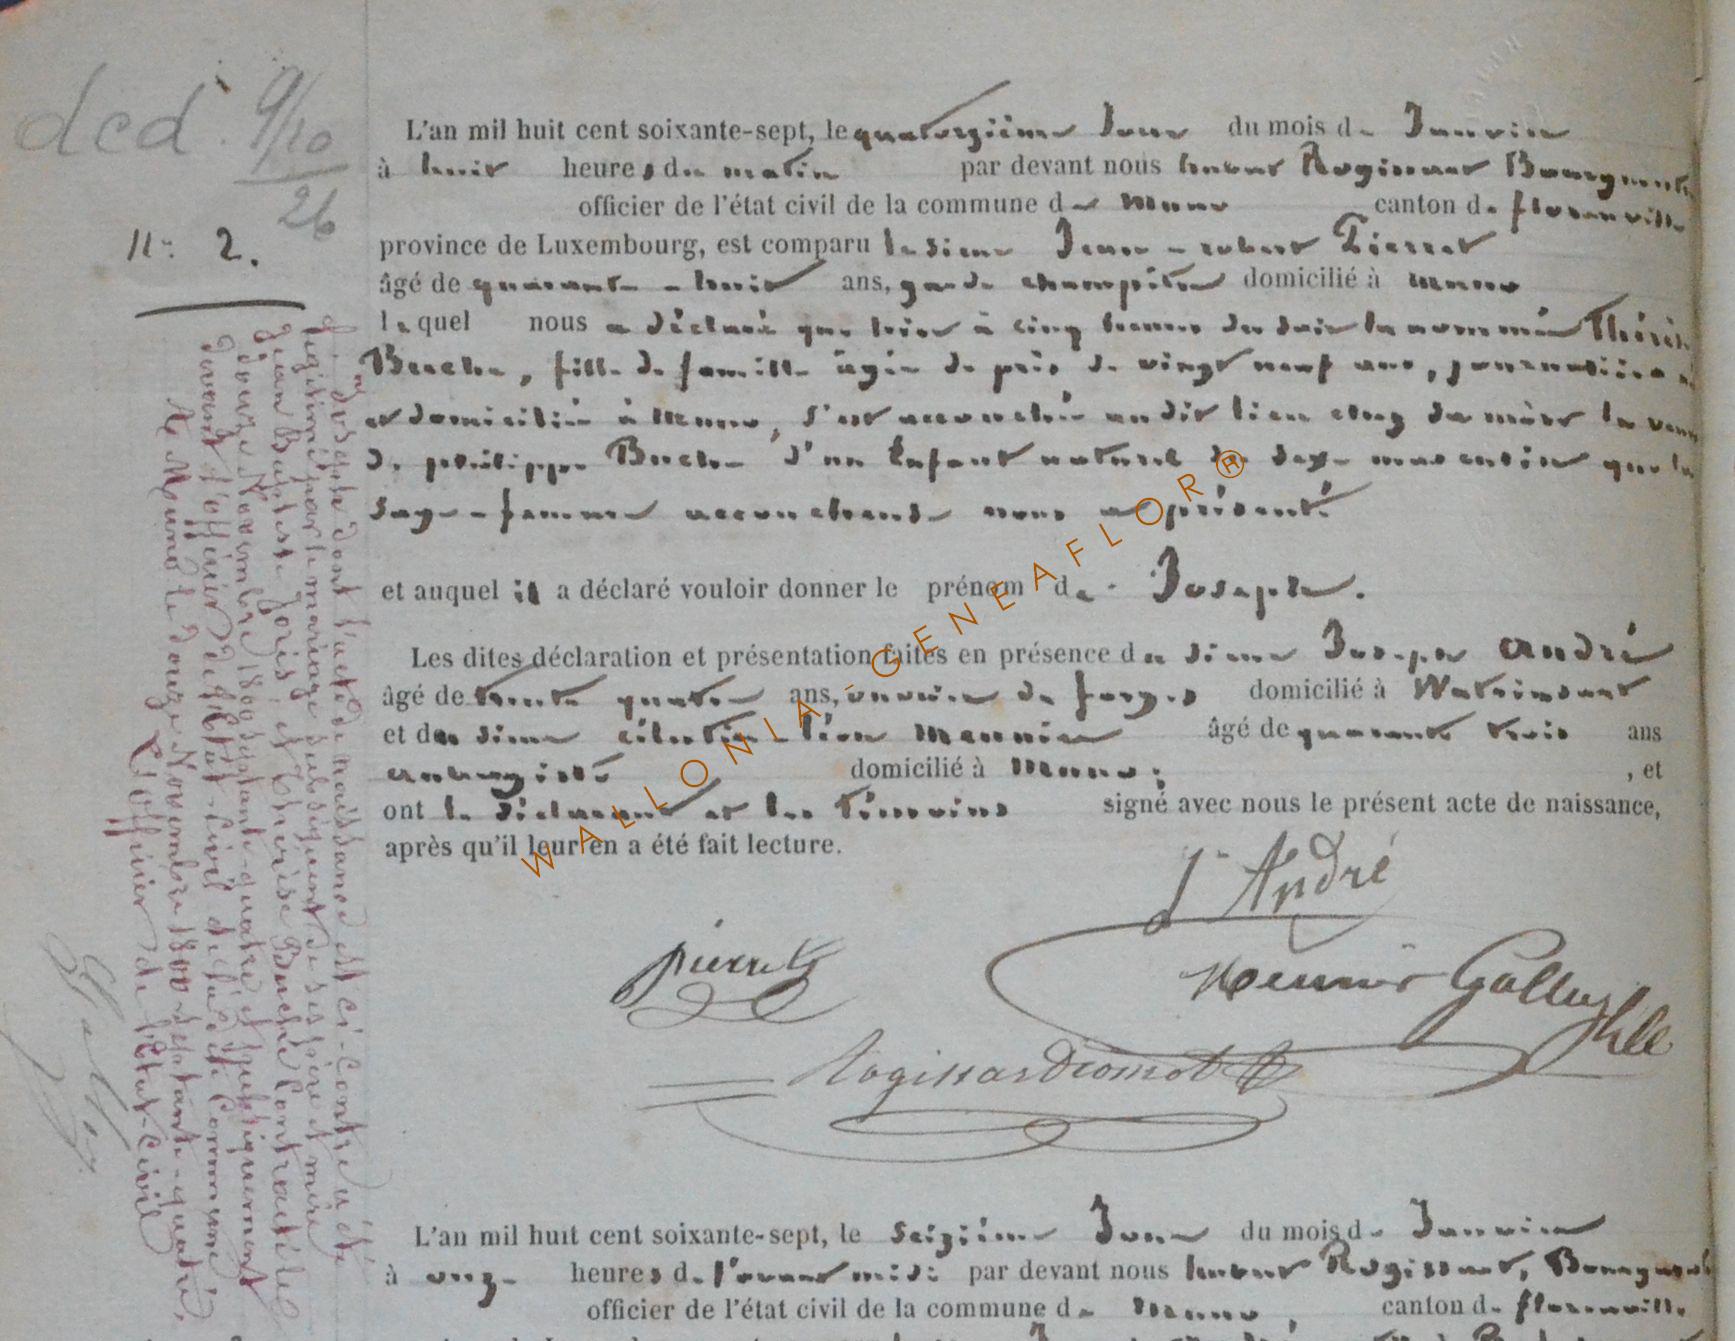 dcd. 9/10
26
N° 2.
L'an mil huit cent soixante-sept, le quatorzième Jour du mois de Janvier
à huit heures du matin par devant nous hubert Rogissart Bourgmestre
officier de l'état civil de la commune de Muno canton de florenville
province de Luxembourg, est comparu le sieur Jean-robert Pierret
âgé de quarante-huit ans, garde champêtre domicilié à Muno
lequel nous a déclaré que hier à cinq heures du soir la nommée Thérèse
Buche, fille de famille âgée de près de vingt neuf ans, journalière
et domiciliée à Muno, s'est accouchée au dit lieu chez sa mère la veuve
de philippe Buche d'un Enfant naturel du sexe masculin que la
sage-femme accoucheuse nous a présenté
et auquel il a déclaré vouloir donner le prénom de Joseph.
Les dites déclaration et présentation faites en présence du sieur Joseph André
âgé de trente quatre ans, ouvrier de forges domicilié à Watrinsart
et du sieur célestin-léon Meunier âgé de quarante trois ans
aubergiste domicilié à Muno; , et
ont le déclarant et les témoins signé avec nous le présent acte de naissance,
après qu'il leur en a été fait lecture.
J André
Pierret
Meunier Gollug
Rogissart
Joseph dont l'acte de naissance est ci-contre a été
légitimé par le mariage subséquent de ses père et mère
Jean Baptiste et Thérèse Buche Contracté le
douze Novembre 1800 septante-quatre et subséquemment
devant l'officier de l'état-civil de la dite Commune
A Muno le douze Novembre 1800 septante-quatre,
L'officier de l'état-civil
L'an mil huit cent soixante-sept, le seizième Jour du mois de Janvier
à onze heures de l'avant midi par devant nous hubert Rogissart, Bourgmestre
officier de l'état civil de la commune de Muno, canton de florenville
WALLONIA-GENEAFLOR®